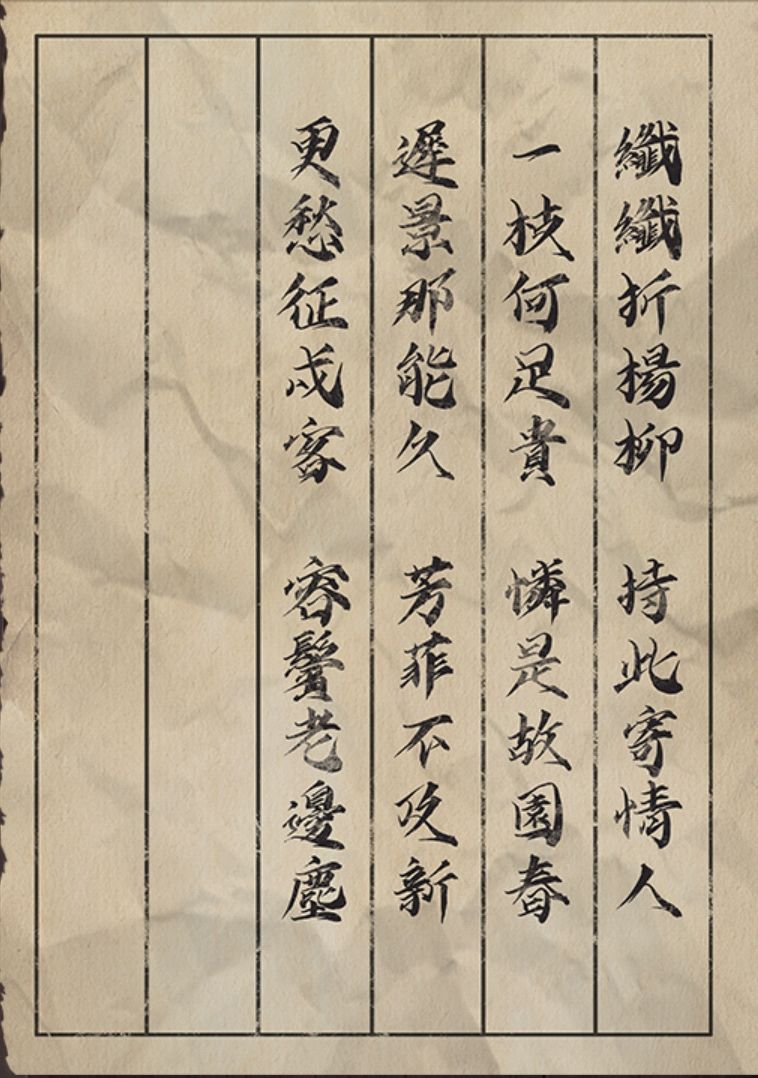 纖纖折楊柳 持此寄情人
一枝何足貴 憐是故園春
遲景那能久 芳菲不及新
更愁征戍客 容鬢老邊塵